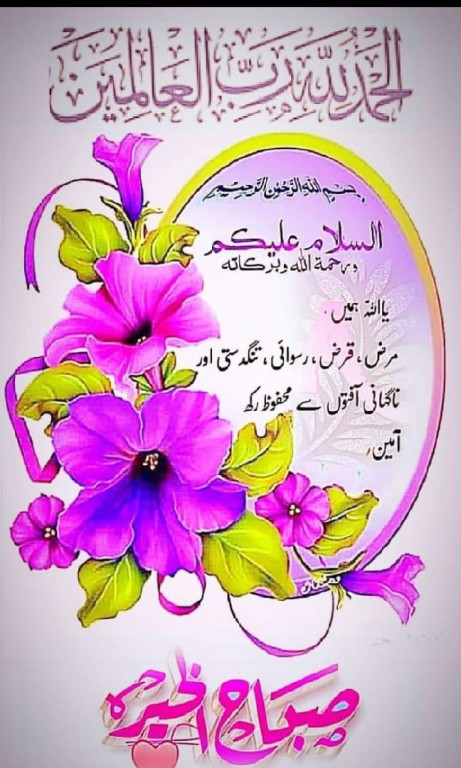 الحمد لله رب العالمين
بسم الله الرحمن الرحيم
السلام عليكم
ورحمة الله وبركاته
یااللہ ہمیں
مرض، قرض، رسوائی، تنگدستی اور
ناگہانی آفتوں سے محفوظ رکھ
آمین
صباح الخير